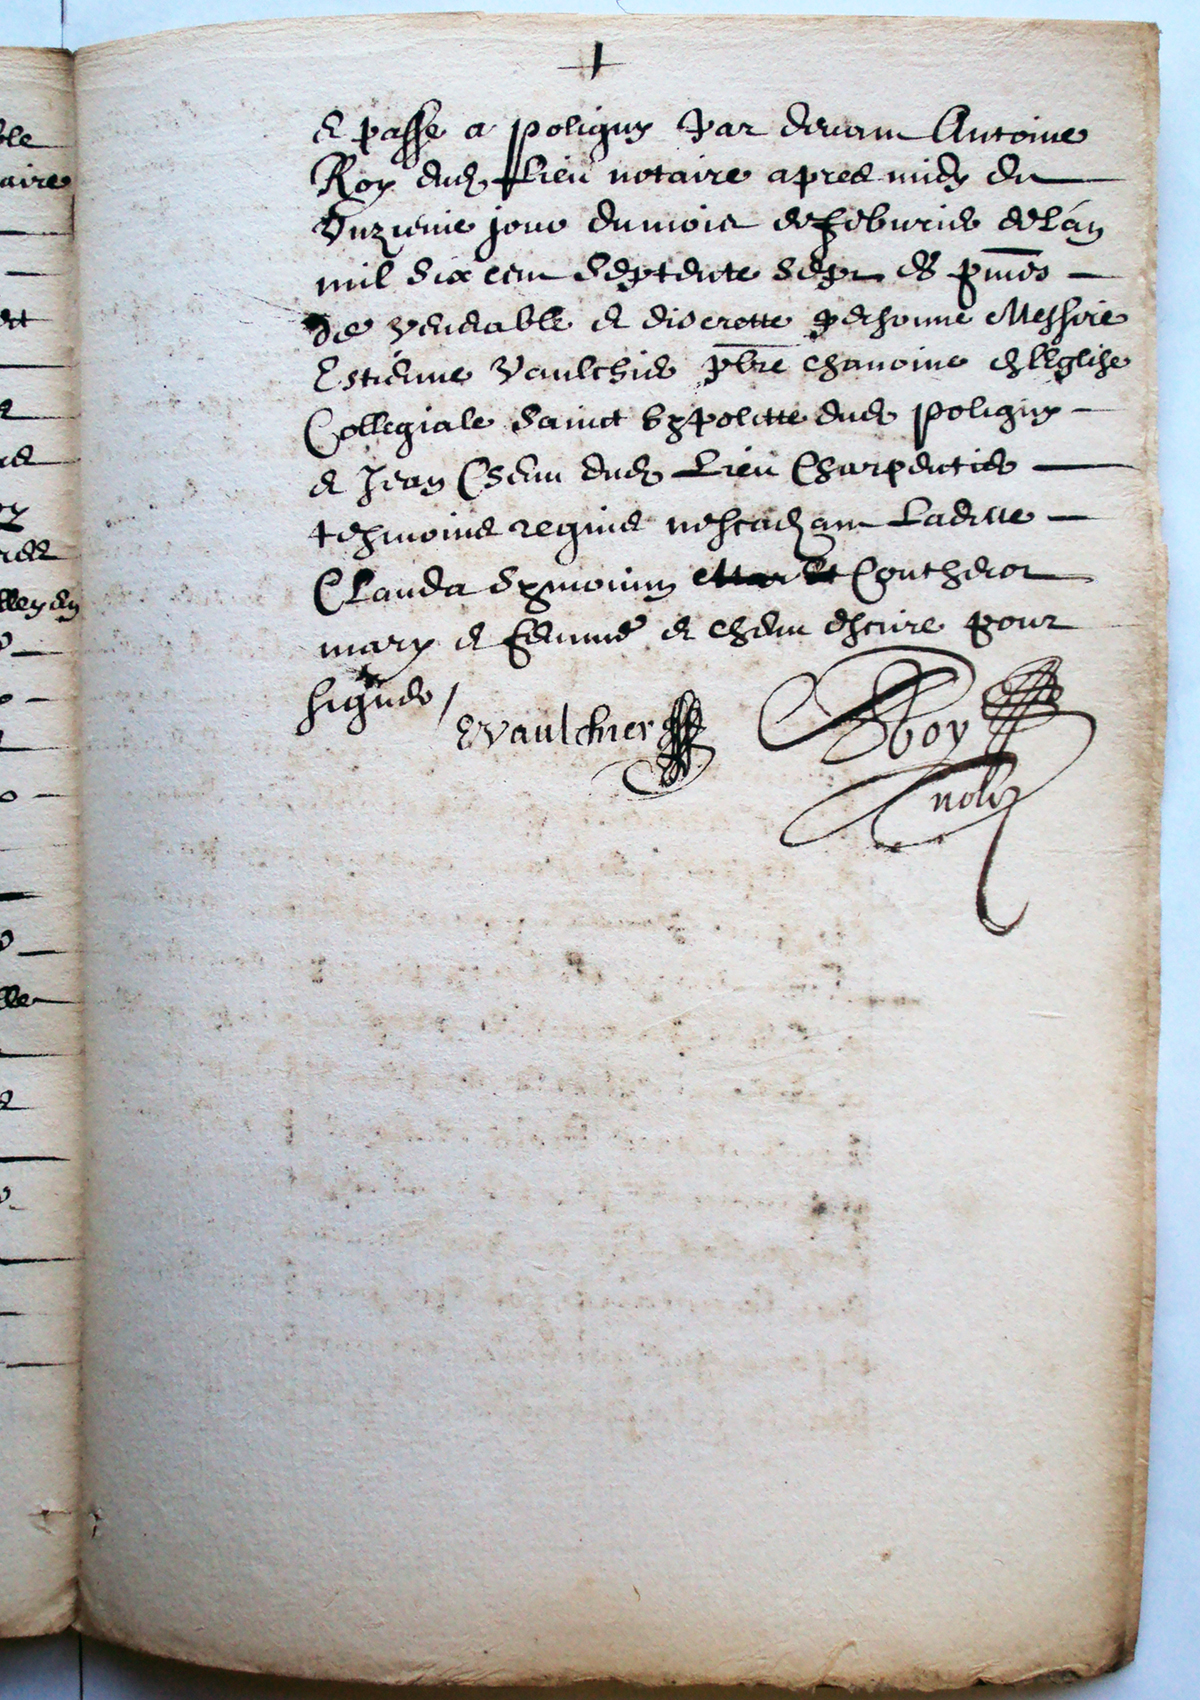 ble
aire
& passe a poligny par devam Antoine
Roy dud lieu notaire apres midy du
Unzieme jour du mois de feburier de lan
mil six cent septente sept es pnces
de venerable & discrette personne Messire
Estienne Vaulchier pbre chanoine en leglise
Collegiale sainct hypolitte dud poligny
& Jean Chenu dud lieu Charpentier
tesmoins requis nescachant ladicte
Clauda Symonin Contherot
mary & femme & chenu escrire pour
signer /
EVaulchier
Roy
not